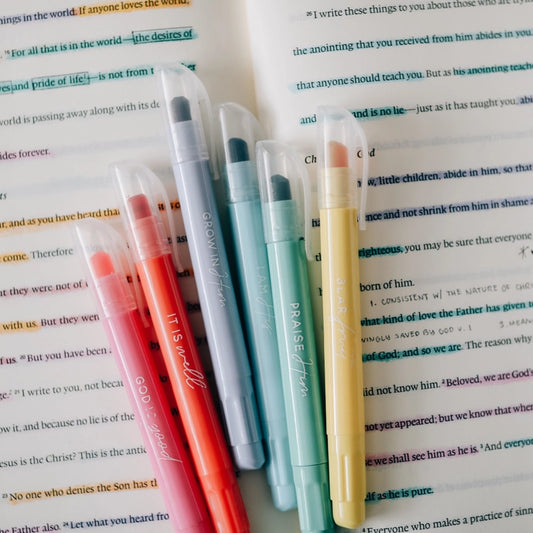 ings in the world. If anyone loves the world,
15 For all that is in the world—the desires of
yes and pride of life]—is not from
world is passing away along with its
ides forever.
ts
ar, and as you have heard
come. Therefore
they were not of
with us. But they were
of us. 20 But you have been
ge. 21 I write to you, not becau
ow it, and because no lie is of the
esus is the Christ? This is the antic
23 No one who denies the Son has
the Father also. 24 Let what you heard
26 I write these things to you about those who are tryin
the anointing that you received from him abides in you,
that anyone should teach you. But as his anointing teache
and is no lie—just as it has taught you, abi
Ch God
ow, little children, abide in him, so that
ence and not shrink from him in shame a
righteous, you may be sure that everyone
born of him.
1. CONSISTENT W/ THE NATURE OF CHR
what kind of love the Father has given to
INGLY SAVED BY GOD V. 1
of God; and so we are. The reason why
did not know him. 2 Beloved, we are God's
not yet appeared; but we know that when
we shall see him as he is. 3 And everyone
elf as he is pure.
4 Everyone who makes a practice of sinn
GOD is good
IT IS well
GROW IN Him
I AM His
PRAISE Him
BEAR fruit